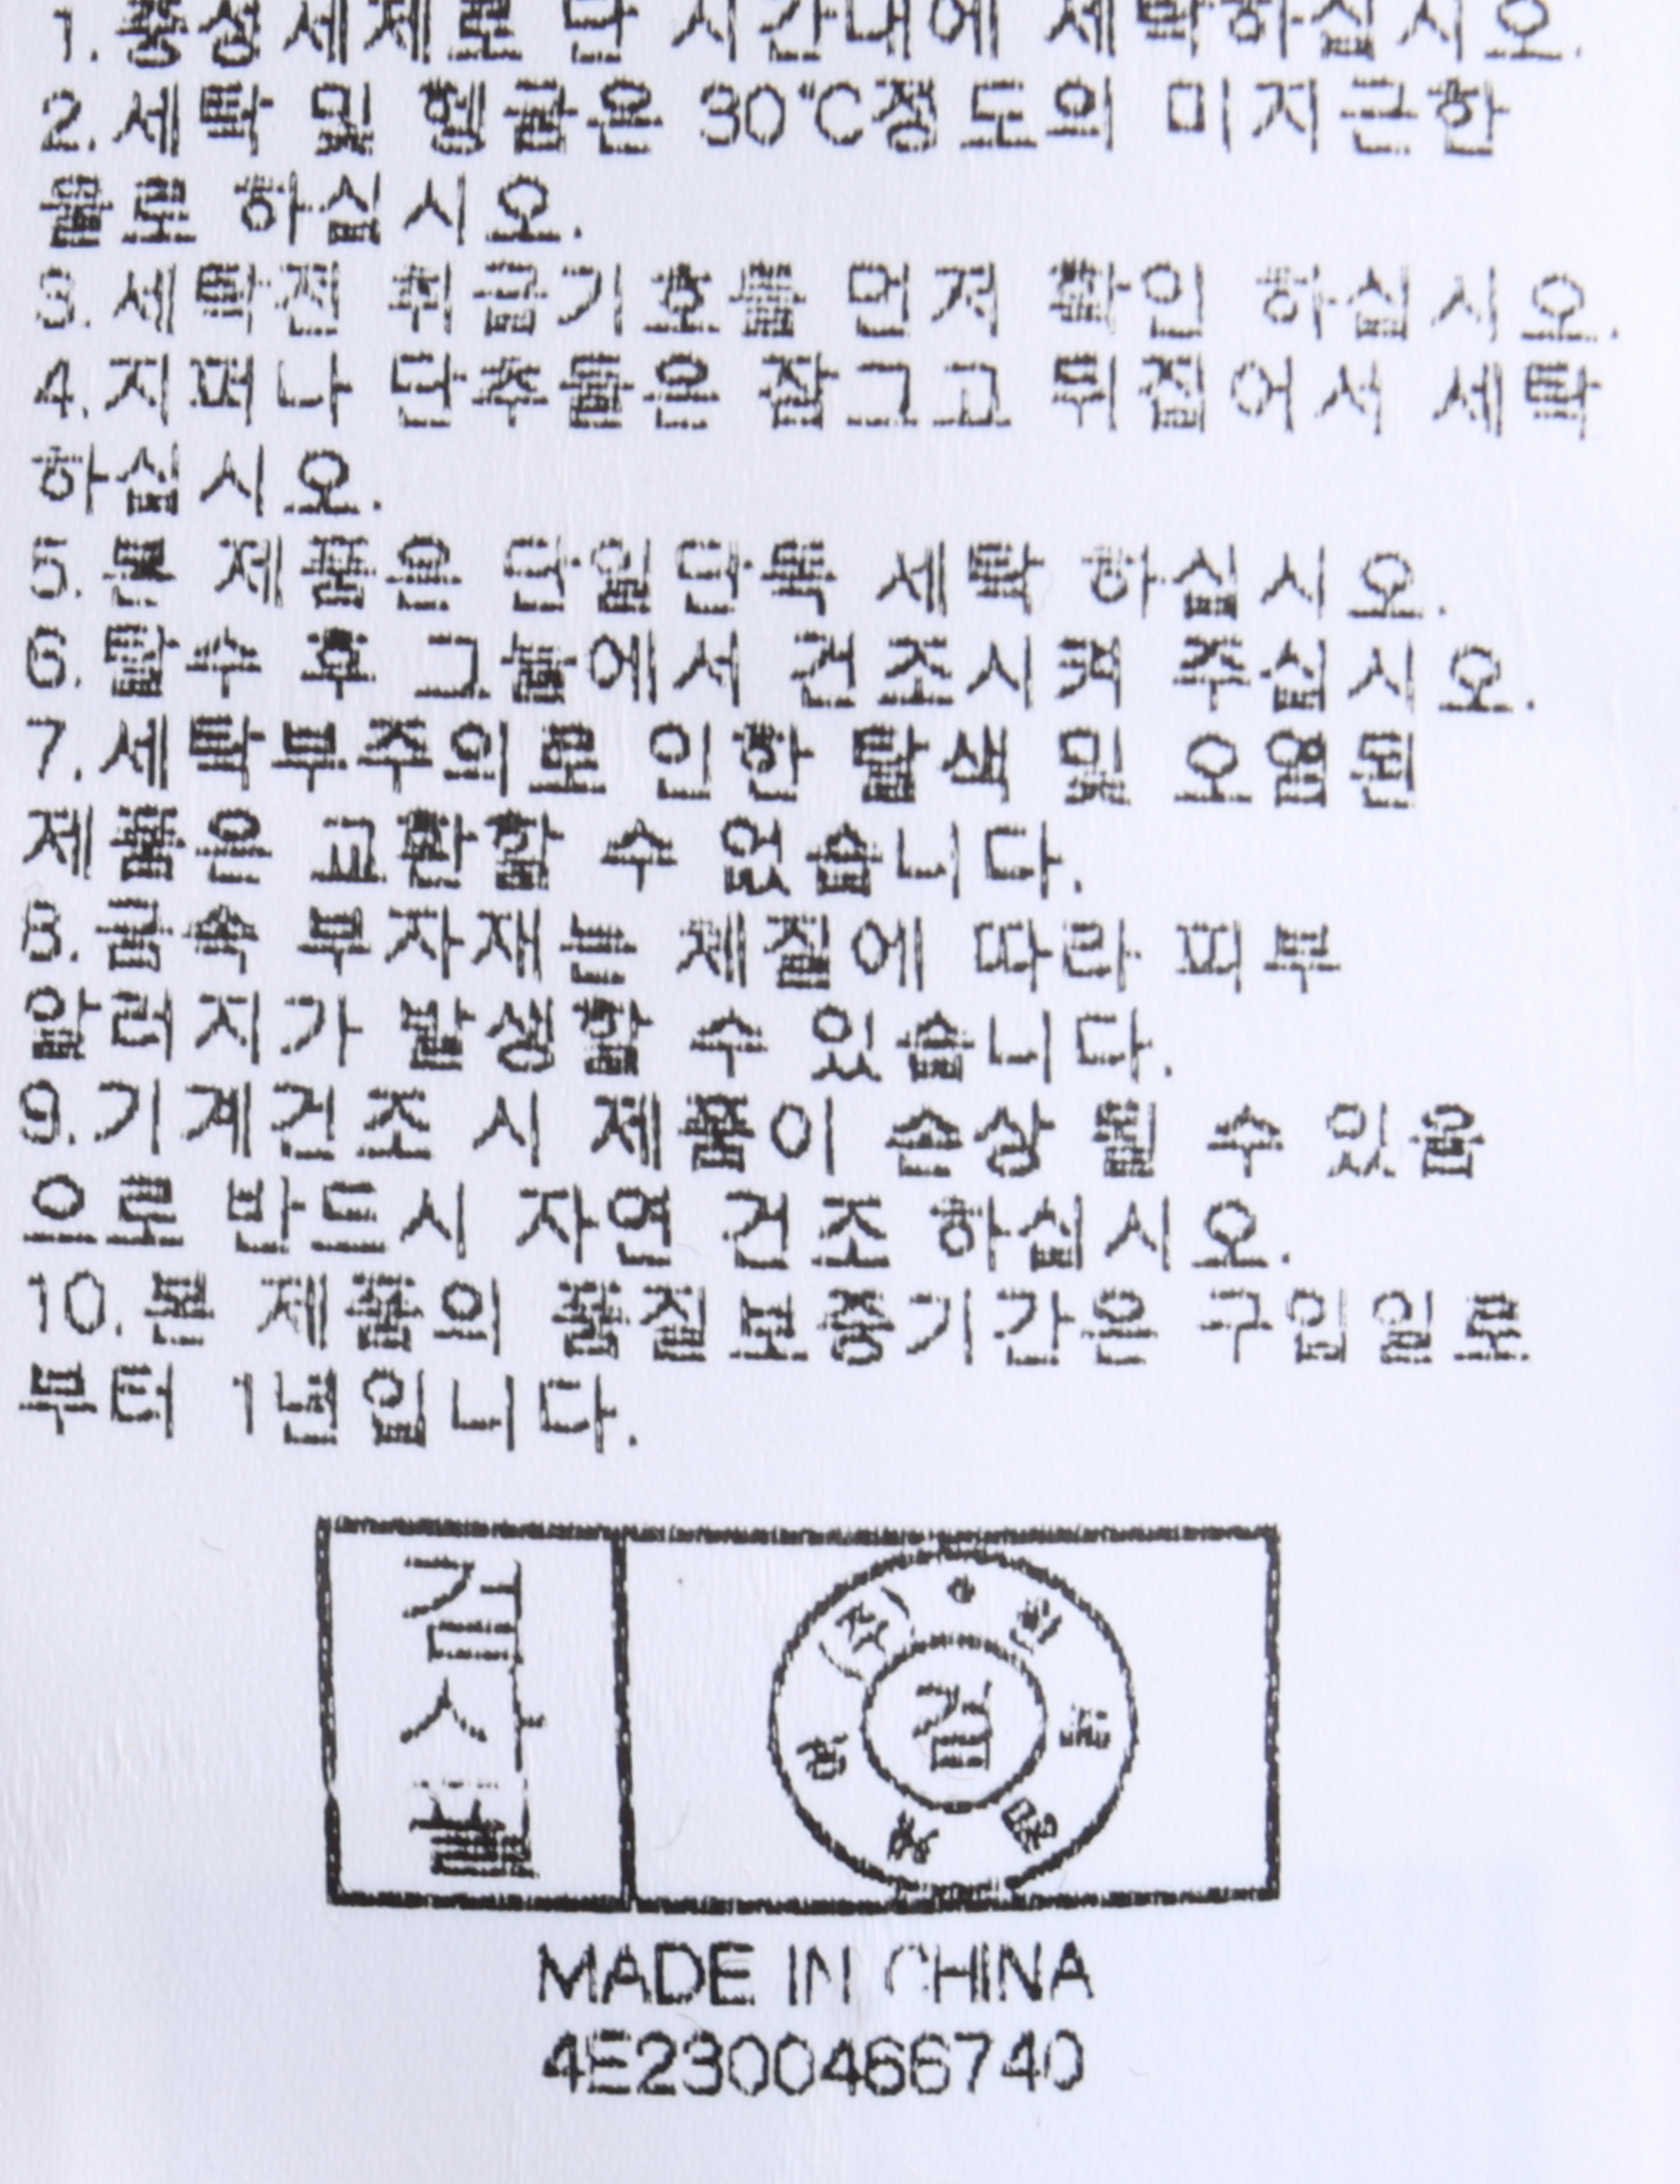 1.중성세제로 단 시간내에 세탁하십시오.
2.세탁 및 헹굼은 30℃정도의 미지근한
물로 하십시오.
3.세탁전 취급기호를 먼저 확인 하십시오.
4.지퍼나 단추들은 잠그고 뒤집어서 세탁
하십시오.
5.본 제품은 단일단독 세탁 하십시오.
6.탈수 후 그늘에서 건조시켜 주십시오.
7.세탁부주의로 인한 탈색 및 오염된
제품은 교환할 수 없습니다.
8.금속 부자재는 체질에 따라 피부
알러지가 발생할 수 있습니다.
9.기계건조 시 제품이 손상 될 수 있음
으로 반드시 자연 건조 하십시오.
10.본 제품의 품질보증기간은 구입일로
부터 1년입니다.
검
사
필
(주)
검
MADE IN CHINA
4E2300466740